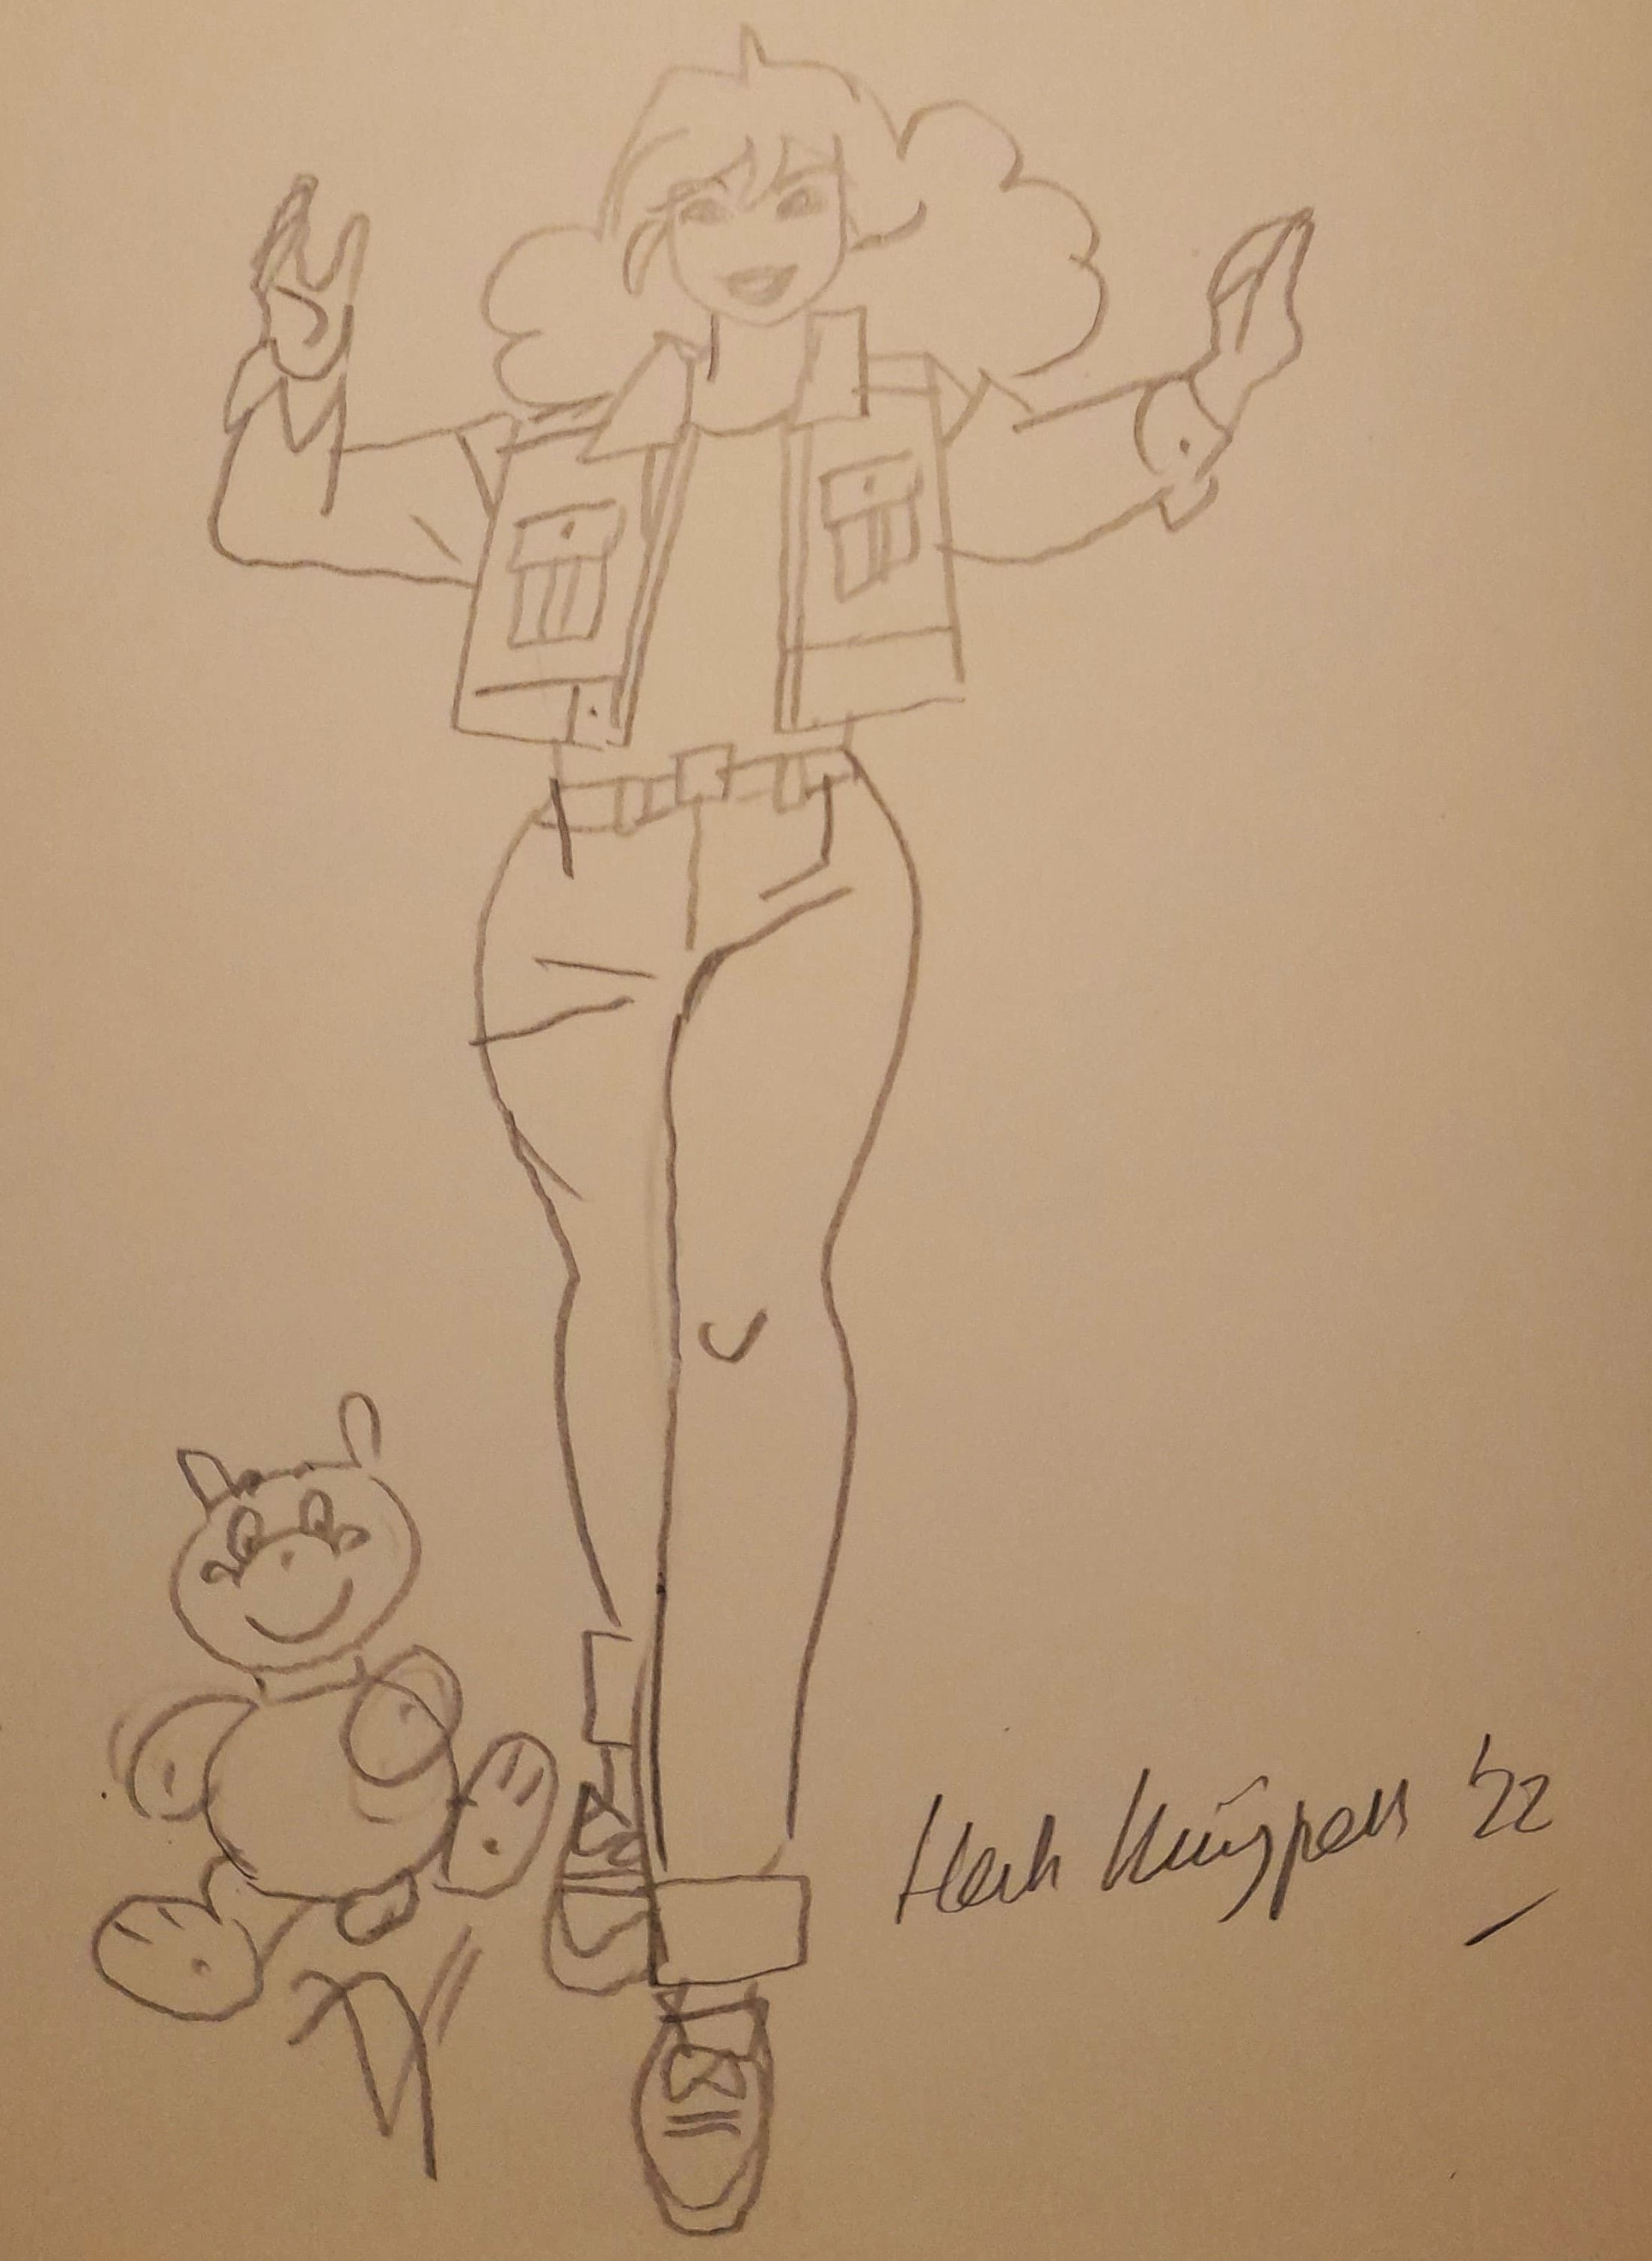 Henk Kuijpers '22